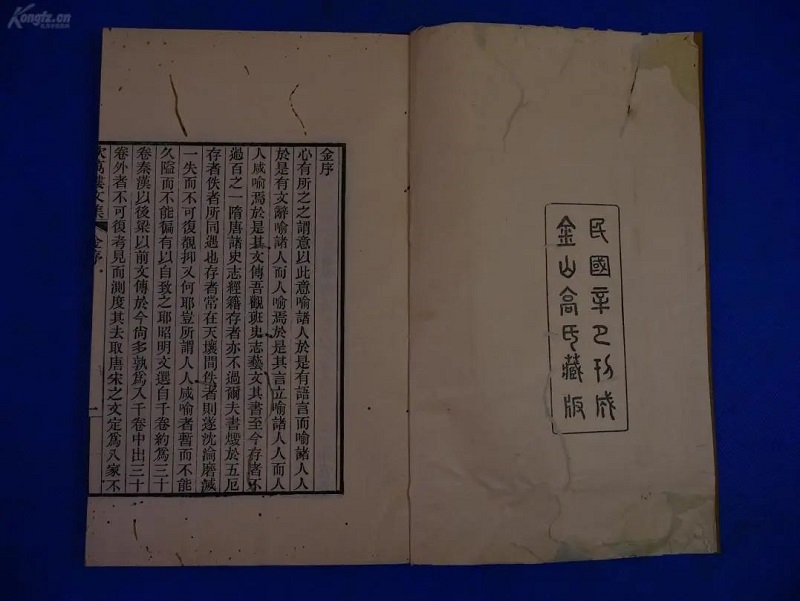 Kongfz.cn
民國辛巳刊成
金山高氏藏版
金序
心有所之之謂意以此意喻諸人於是有語言而喻諸人人
於是有文辭喻諸人而人喻焉於是其言立喻諸人人而人
人咸喻焉於是其文傳吾觀班史志藝文其書至今存者不
過百之一隋唐諸史志經籍存者亦不過爾夫書燬於五厄
存者佚者所同遇也存者常在天壤間佚者則遂沈淪磨滅
一失而不可復覩抑又何耶豈所謂人人咸喻者暫而不能
久隘而不能徧有以自致之耶昭明文選自千卷約爲三十
卷秦漢以後梁以前文傳於今尙多孰爲入千卷中出三十
卷外者不可復考見而測度其去取唐宋之文定爲八家不
吹萬樓文集 金序 一